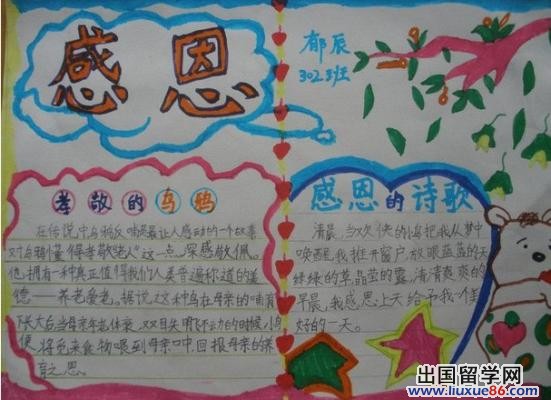 感恩
郁辰
302班
孝敬的乌鸦
在传说中乌鸦反哺是最让人感动的一个故事
对乌鸦懂得孝敬"老人"这一点,深感敬佩。
他,拥有一种真正值得我们人类普遍称道的美
德——养老爱老。据说这种鸟在母亲的哺育
下长大后,当母亲年老体衰,双目失明飞不动的时候,小鸟
便将觅来食物喂到母亲口中,回报母亲的养
育之恩。
感恩的诗歌
清晨,当欢快的小鸟把我从梦中
唤醒,我推开窗户,放眼蓝蓝的天
绿绿的草晶莹的露,清清爽爽的
早晨,我感恩上天给予我一个美
好的一天。
出国留学网
www.liuxue86.com